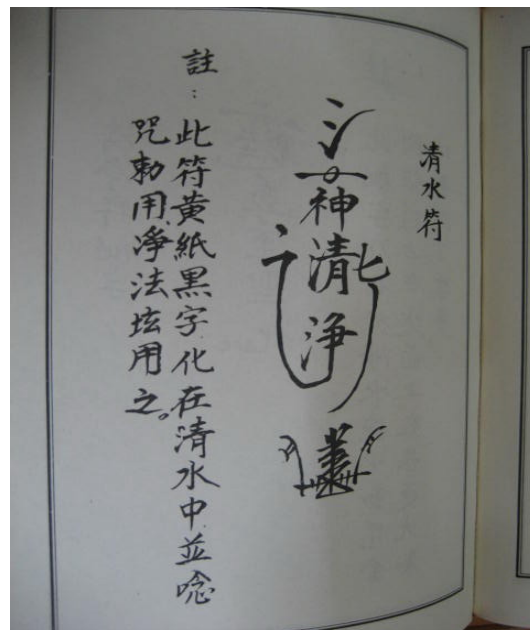 清水符
神
清
淨
註：此符黃紙黑字化在清水中並唸
咒勅用淨法坛用之。